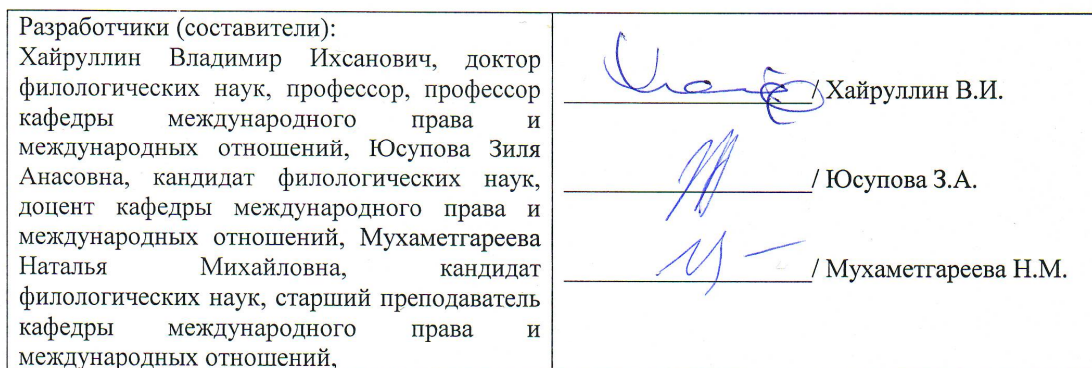 Разработчики (составители):
Хайруллин Владимир Ихсанович, доктор
филологических наук, профессор, профессор
кафедры международного права и
международных отношений, Юсупова Зиля
Анасовна, кандидат филологических наук,
доцент кафедры международного права и
международных отношений, Мухаметгареева
Наталья Михайловна, кандидат
филологических наук, старший преподаватель
кафедры международного права и
международных отношений,
/ Хайруллин В.И.
/ Юсупова З.А.
/ Мухаметгареева Н.М.